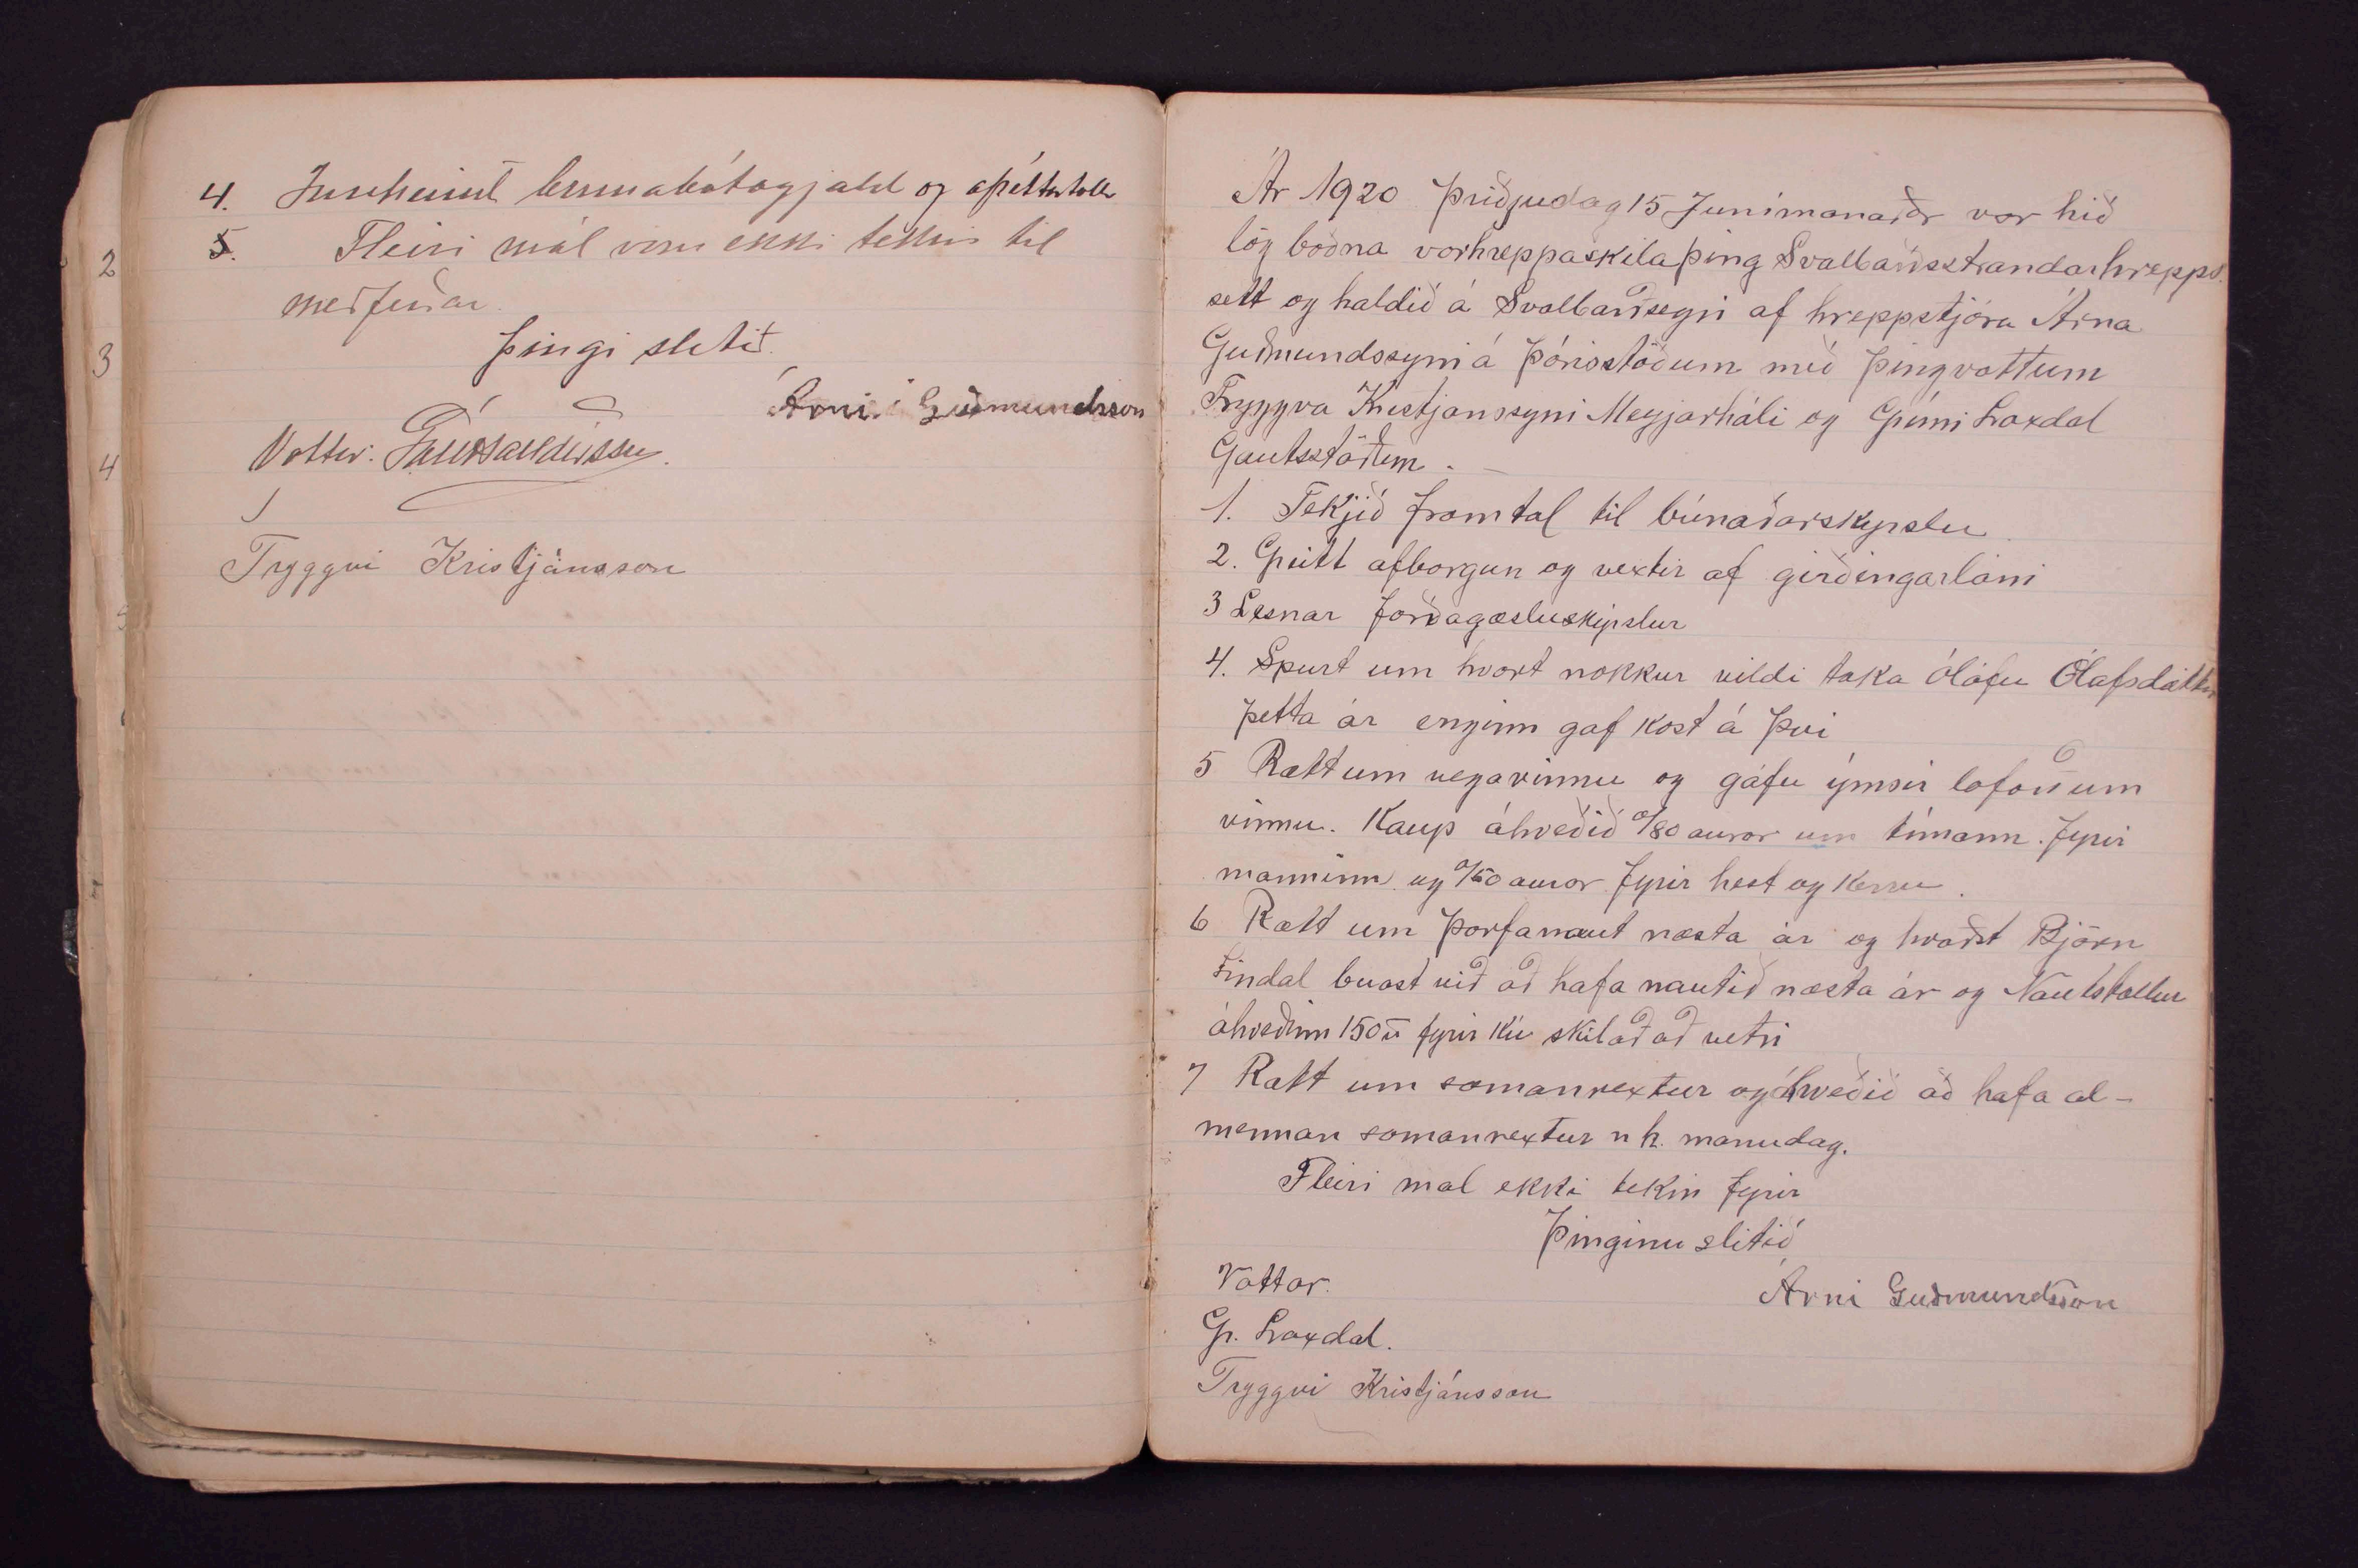 2
3
4
4. Innheimt brunabótagjald og afréttartollr
5. Fleiri mál voru ekki tekin til
meðferðar.
Þingi slitið.
Árni Guðmundsson
Vottar:
Tryggvi Kristjánsson
Ár 1920 Þriðjudag 15 Junímanaðar var hið
lög boðna vorhreppaskilaþing Svalbarðsstrandarhrepps
sett og haldið á Svalbarðseyri af hreppstjóra Árna
Guðmundssyni á Þórisstöðum með þingvottum
Tryggva Kristjanssyni Meyjarhóli og Grími Laxdal
Gautsstöðum.
1. Tekjið framtal til búnaðarskyrslu
2. Greitt afborgun og vextir af girðingarláni
3 Lesnar forðagæsluskyrslur
4. Spurt um hvort nokkur vildi taka Ólöfu Ólafsdóttir
þetta ár enginn gaf kost á því
5 Rætt um vegavinnu og gáfu ýmsir loforð um
vinnu. Kaup ákveðið 0/80 aurar um tímann. fyrir
manninn og 0/50 aurar fyrir hest og kerru.
6 Rætt um þarfanaut næsta ár og kvaðst Björn
Lindal buast við að hafa nautið næsta ár og Nautstollur
ákveðinn fyrir kú skilað að vetri
7 Rætt um samanrextur og ákveðið að hafa al-
mennan samanrextur n k. manudag.
Fleiri mal ekki tekin fyrir
Þinginu slitið
Vottar.
Árni Guðmundsson
Gr. Laxdal.
Tryggvi Kristjánsson